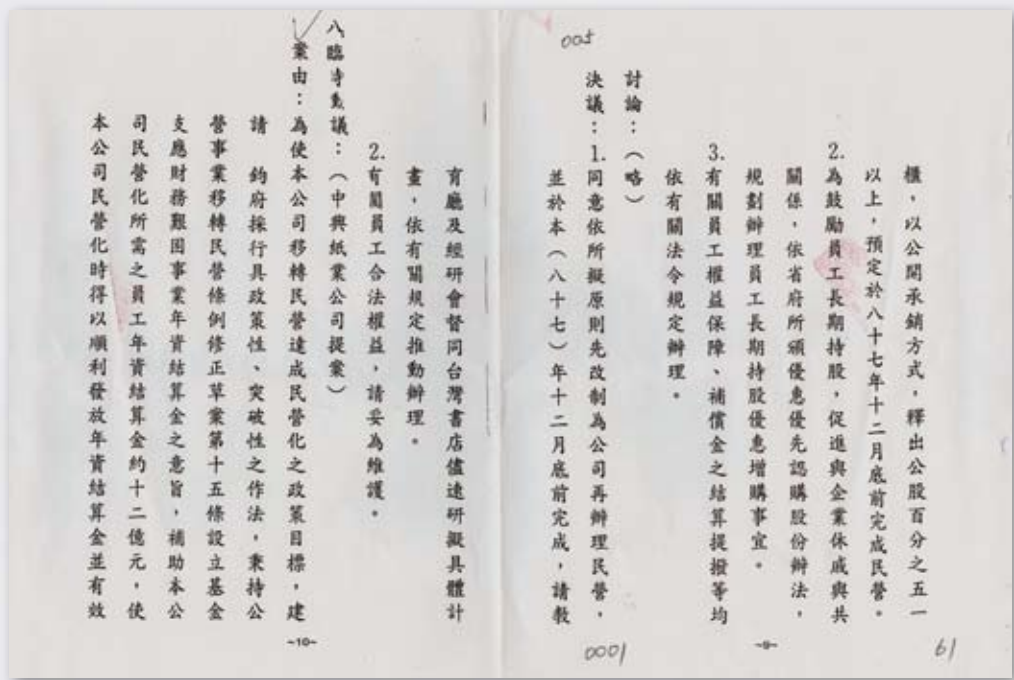 005
櫃，以公開承銷方式，釋出公股百分之五一
以上，預定於八十七年十二月底前完成民營。
2.為鼓勵員工長期持股，促進與企業休戚與共
關係，依省府所頒優惠優先認購股份辦法，
規劃辦理員工長期持股優惠增購事宜。
3.有關員工權益保障、補償金之結算提撥等均
依有關法令規定辦理。
討論：（略）
決議：1.同意依所擬原則先改制為公司再辦理民營，
並於本（八十七）年十二月底前完成，請教
~9~
0001
61
育廳及經研會督同台灣書店儘速研擬具體計
畫，依有關規定推動辦理。
2.有關員工合法權益，請妥為維護。
八、臨時動議：（中興紙業公司提案）
案由：為使本公司移轉民營達成民營化之政策目標，建
請　鈞府採行具政策性、突破性之作法，秉持公
營事業移轉民營條例修正草案第十五條設立基金
支應財務艱困事業年資結算金之意旨，補助本公
司民營化所需之員工年資結算金約十二億元，使
本公司民營化時得以順利發放年資結算金並有效
~10~